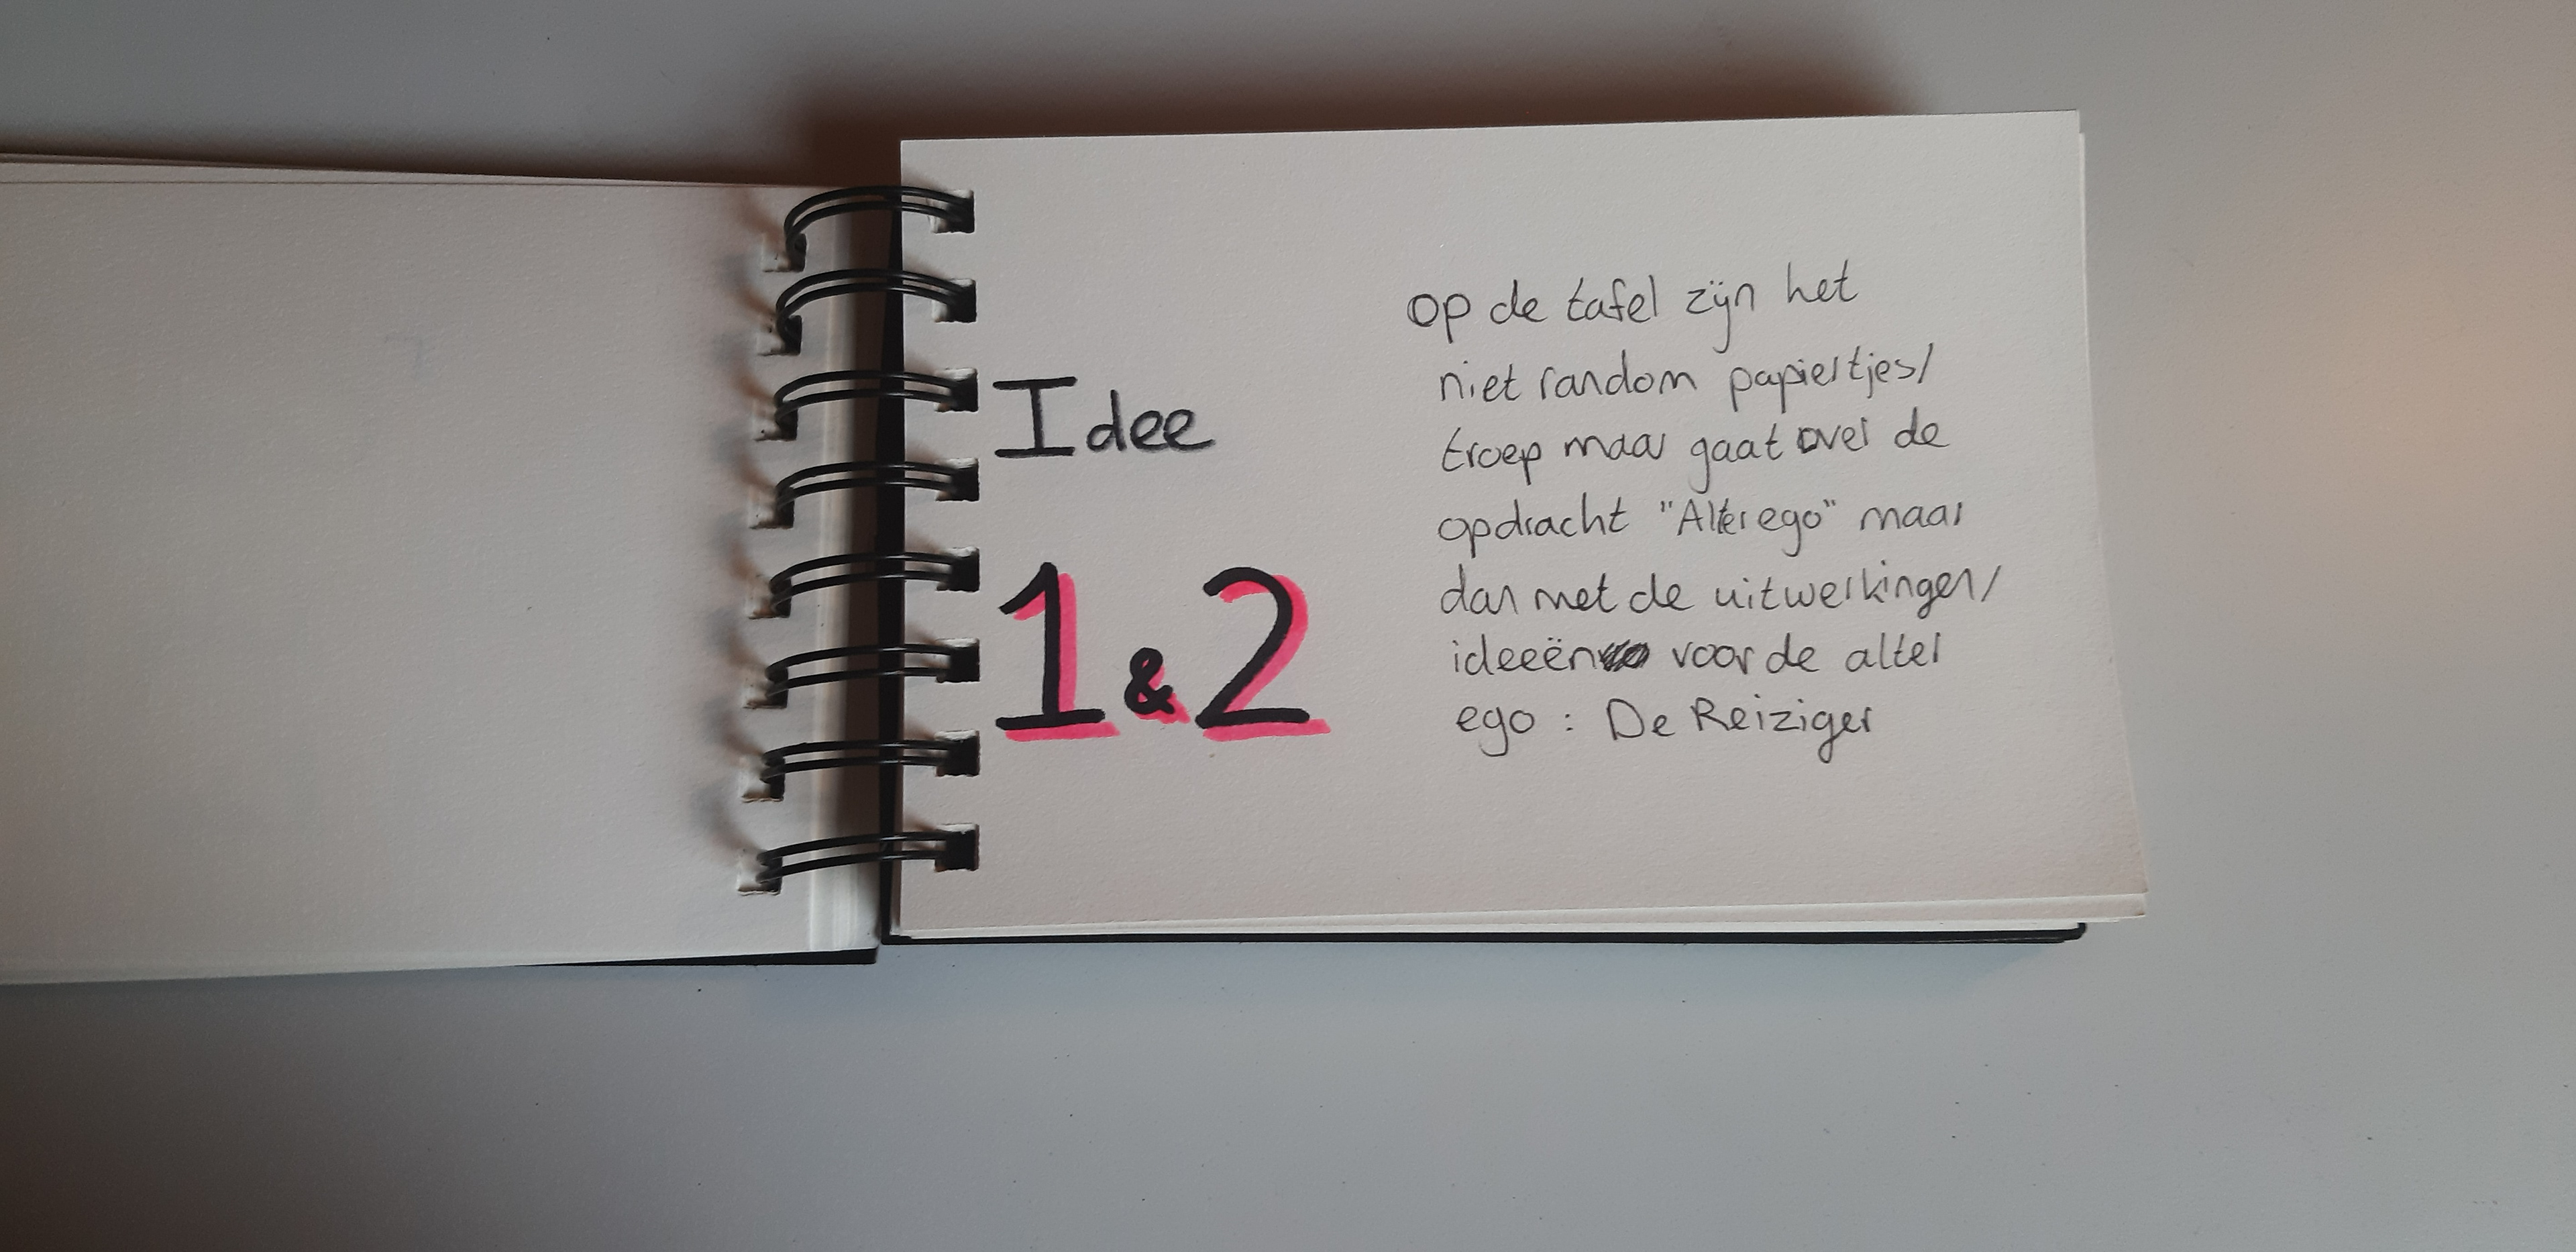 Idee
1 & 2
op de tafel zijn het
niet random papiertjes/
troep maar gaat over de
opdracht "Alter ego" maar
dan met de uitwerkingen/
ideeën voor de alter
ego : De Reiziger